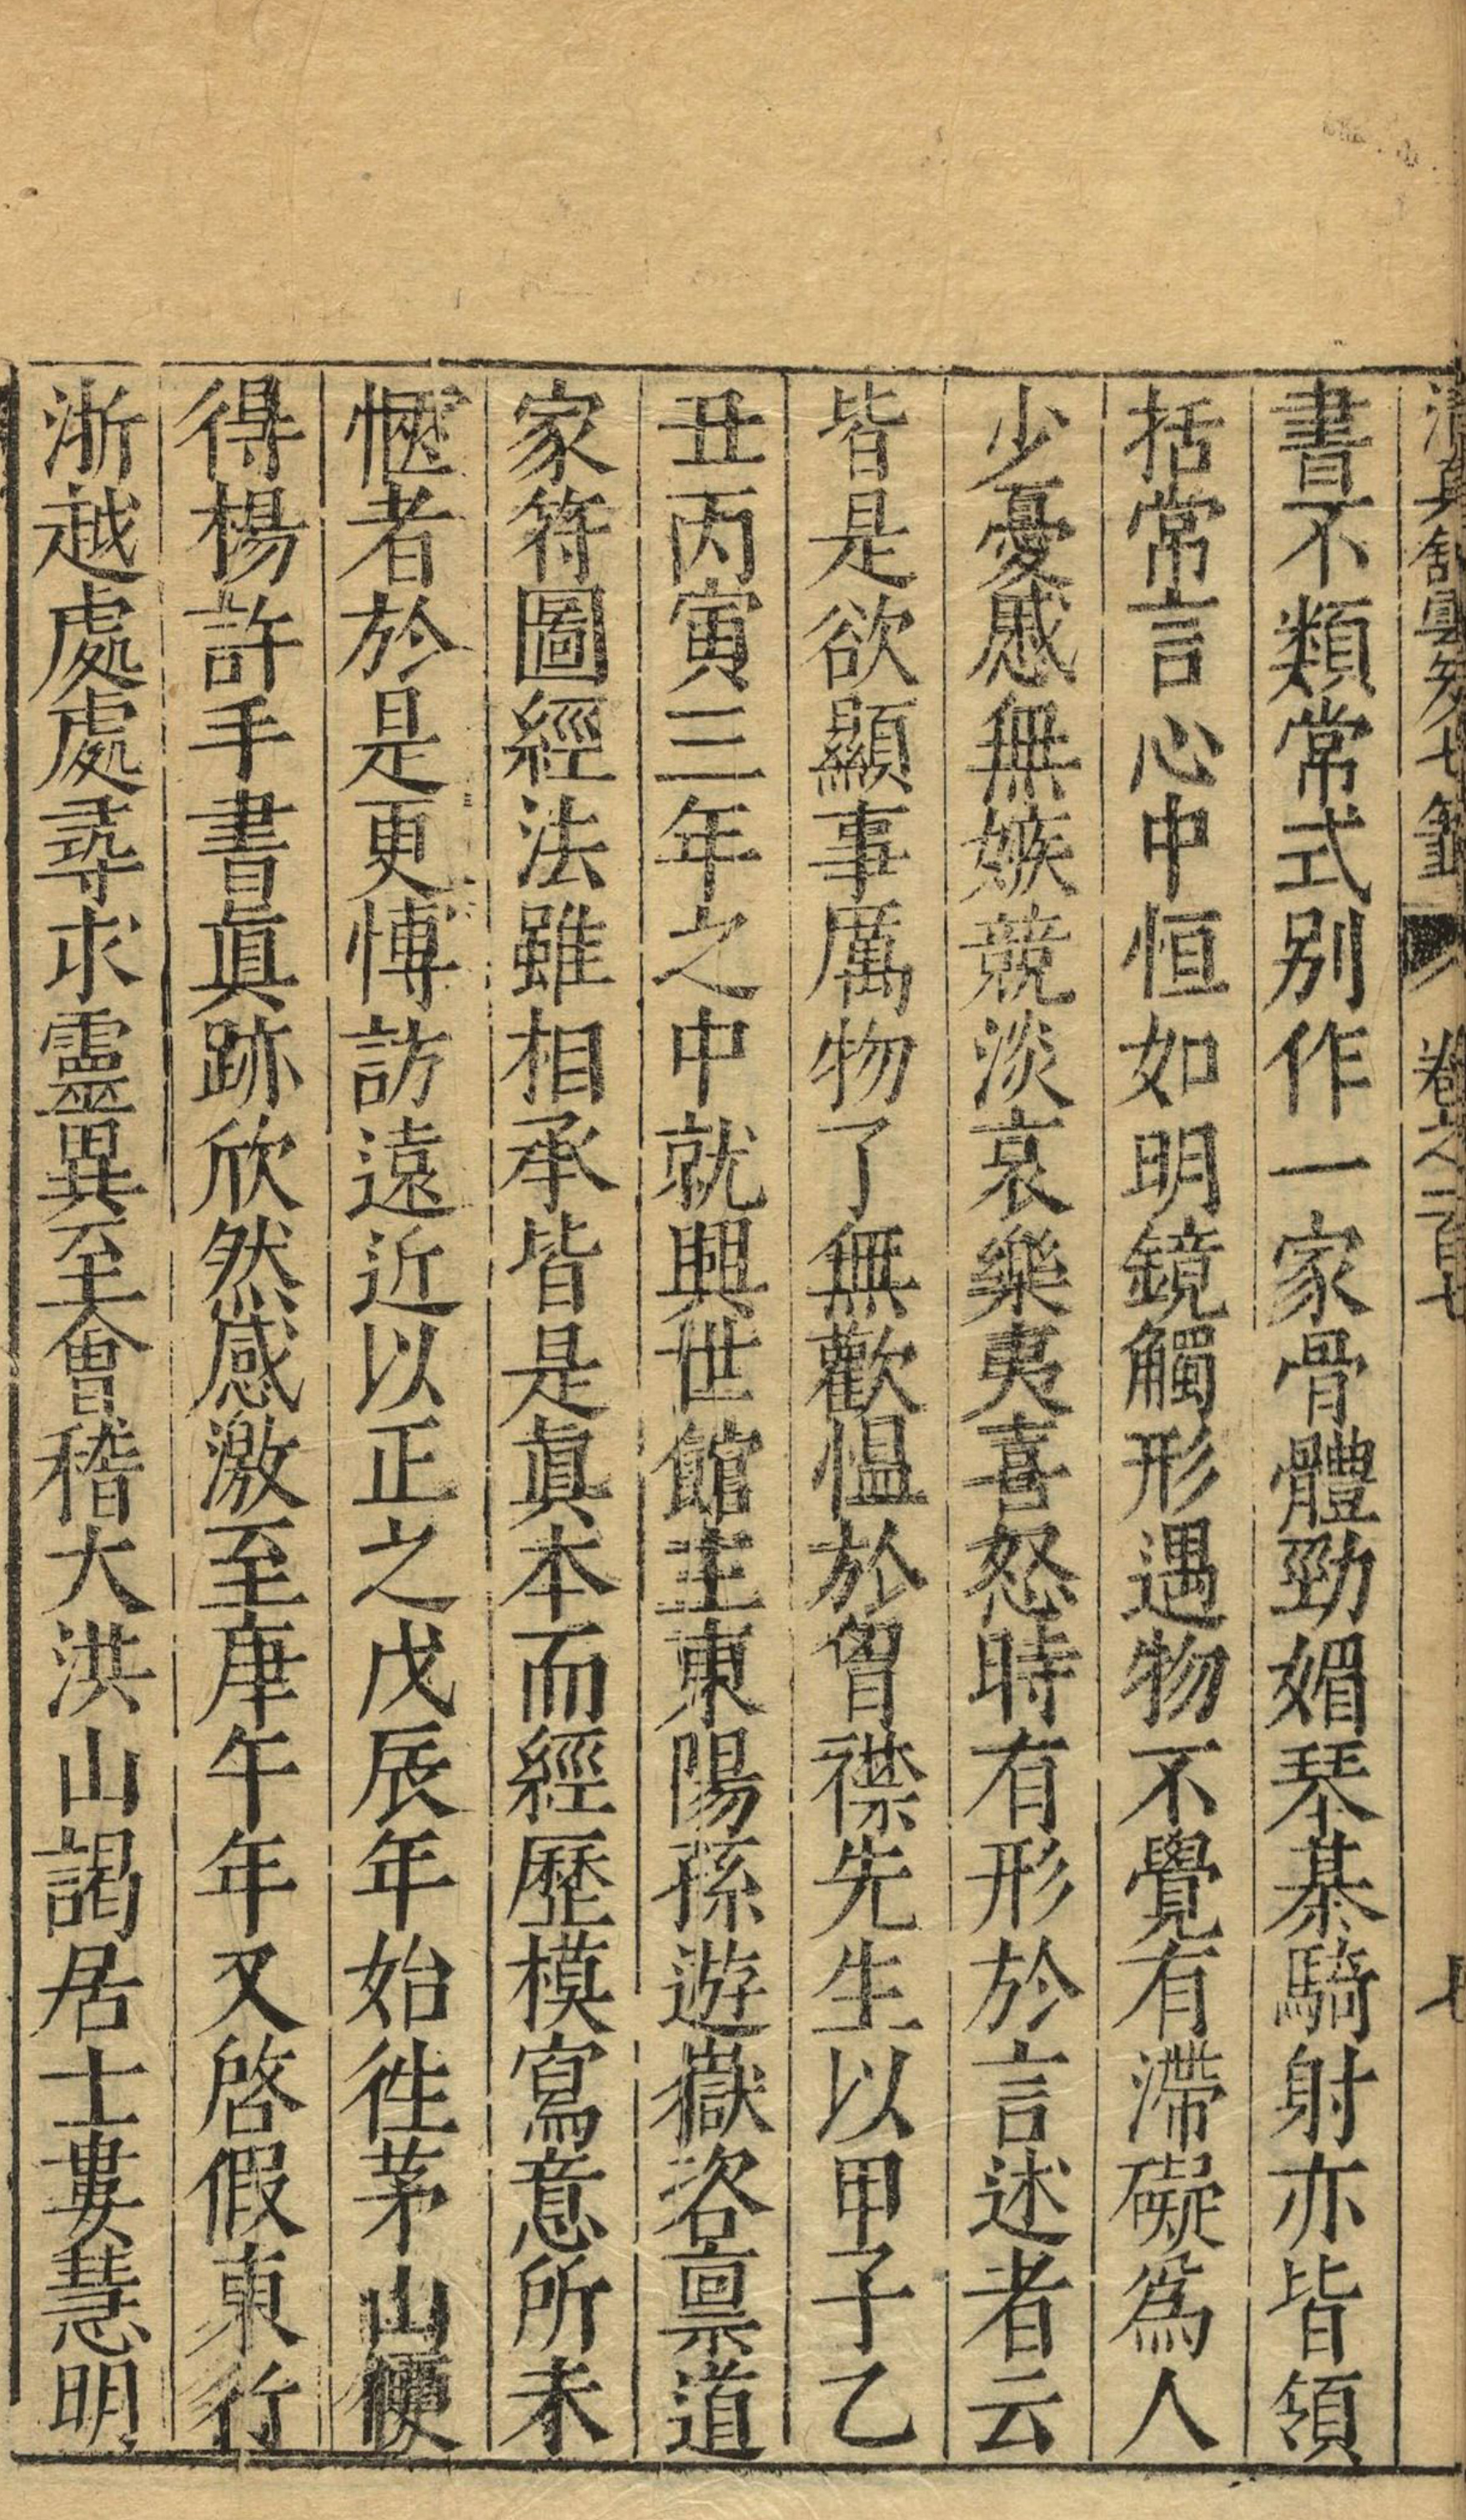 書不類常式别作一家骨體勁媚琴棊騎射亦皆領
括常言心中恒如明鏡觸形遇物不覺有滯礙爲人
少憂慼無嫉競淡哀樂夷喜怒時有形於言述者云
皆是欲顯事厲物了無歡慍於胷襟先生以甲子乙
丑丙寅三年之中就興世館主東陽孫遊嶽咨禀道
家符圖經法雖相承皆是眞本而經歷模寫意所未
愜者於是更博訪遠近以正之戊辰年始徃茅山便
得楊許手書眞跡欣然感激至庚午年又啓假東行
浙越處處尋求靈異至會稽大洪山謁居士婁慧明